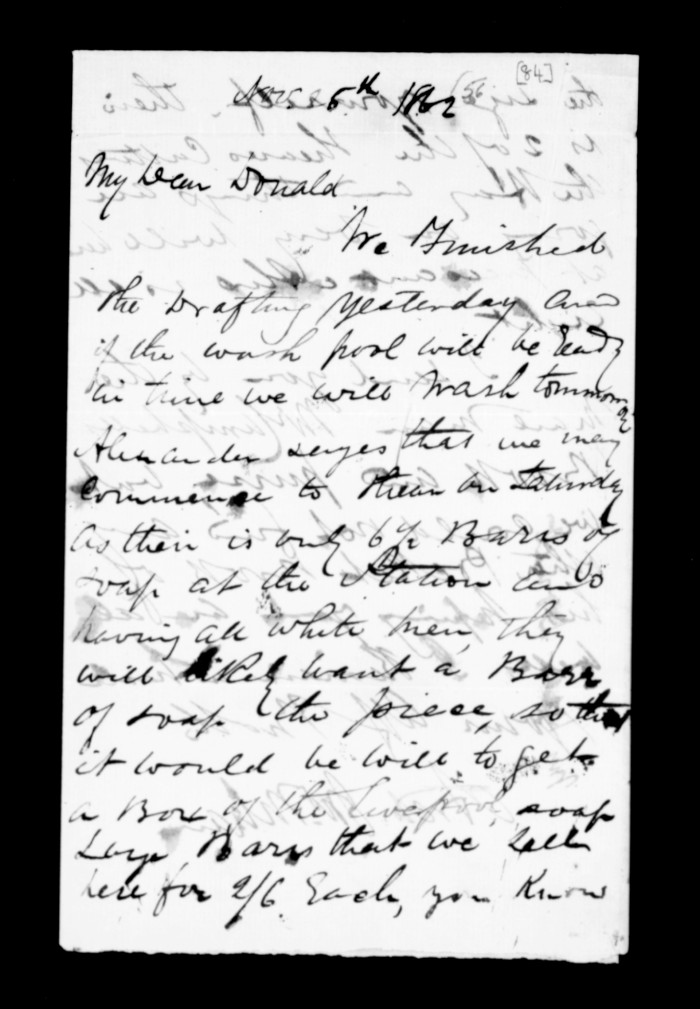 [84]
Nov 5th 1862
My Dear Donald
We Finished
the Drafting yesterday and
if the wash pool will be Ready
in time we will Wash tommorrow
Alexander seyes that we may
Commence to Shear on Saturday
As their is only 6½ Barrs of
soap at the Station and
having all white men, they
will likely want a Barr
of soap the piece, so that
it would be will to get
a Box of the Liverpool soap
Large Barrs that we sell
here for 2/6 Each, you Know